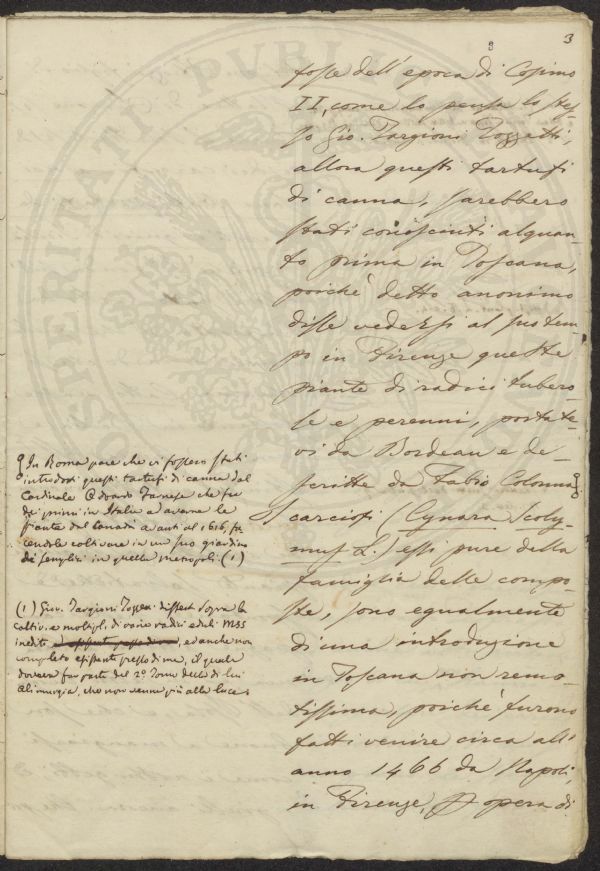 3
fosse dell'epoca di Cosimo
II, come lo pensa lo stes-
so Gio. Targioni Tozzetti,
allora questi tartufi
di canna, sarebbero
stati conosciuti alquan-
to prima in Toscana,
poichè detto anonimo
disse vedersi al suo tem-
po in Firenze queste
piante di radici tubero-
se e perenni, portate-
vi da Bordeau e de-
scritte da Fabio Colonna
I carciofi (Cynara Scoly-
mus L.) essi pure della
famiglia delle compo-
ste, sono egualmente
di una introduzione
in Toscana non remo-
tissima, poichè furono
fatti venire circa all'
anno 1466 da Napoli,
in Firenze, opera di
In Roma pare che vi fossero stati
introdotti questi tartufi di canna dal
Cardinale Odoardo Farnese che fu
dei primi in Italia a averne le
piante dal Canadà avanti al 1616, fa-
cendole coltivare in un suo giardino
de' semplici in quella metropoli (1)
(1) Giov. Targioni Tozzetti dissert. sopra la
coltiv. e moltipl. di varie radici eduli MSS
inedito, ed anche non
completo esistente presso di me, il quale
doveva far parte del 2º Tomo della di lui
Alimurgia, che non venne più alla luce
PROSPERITATI PUBLICAE